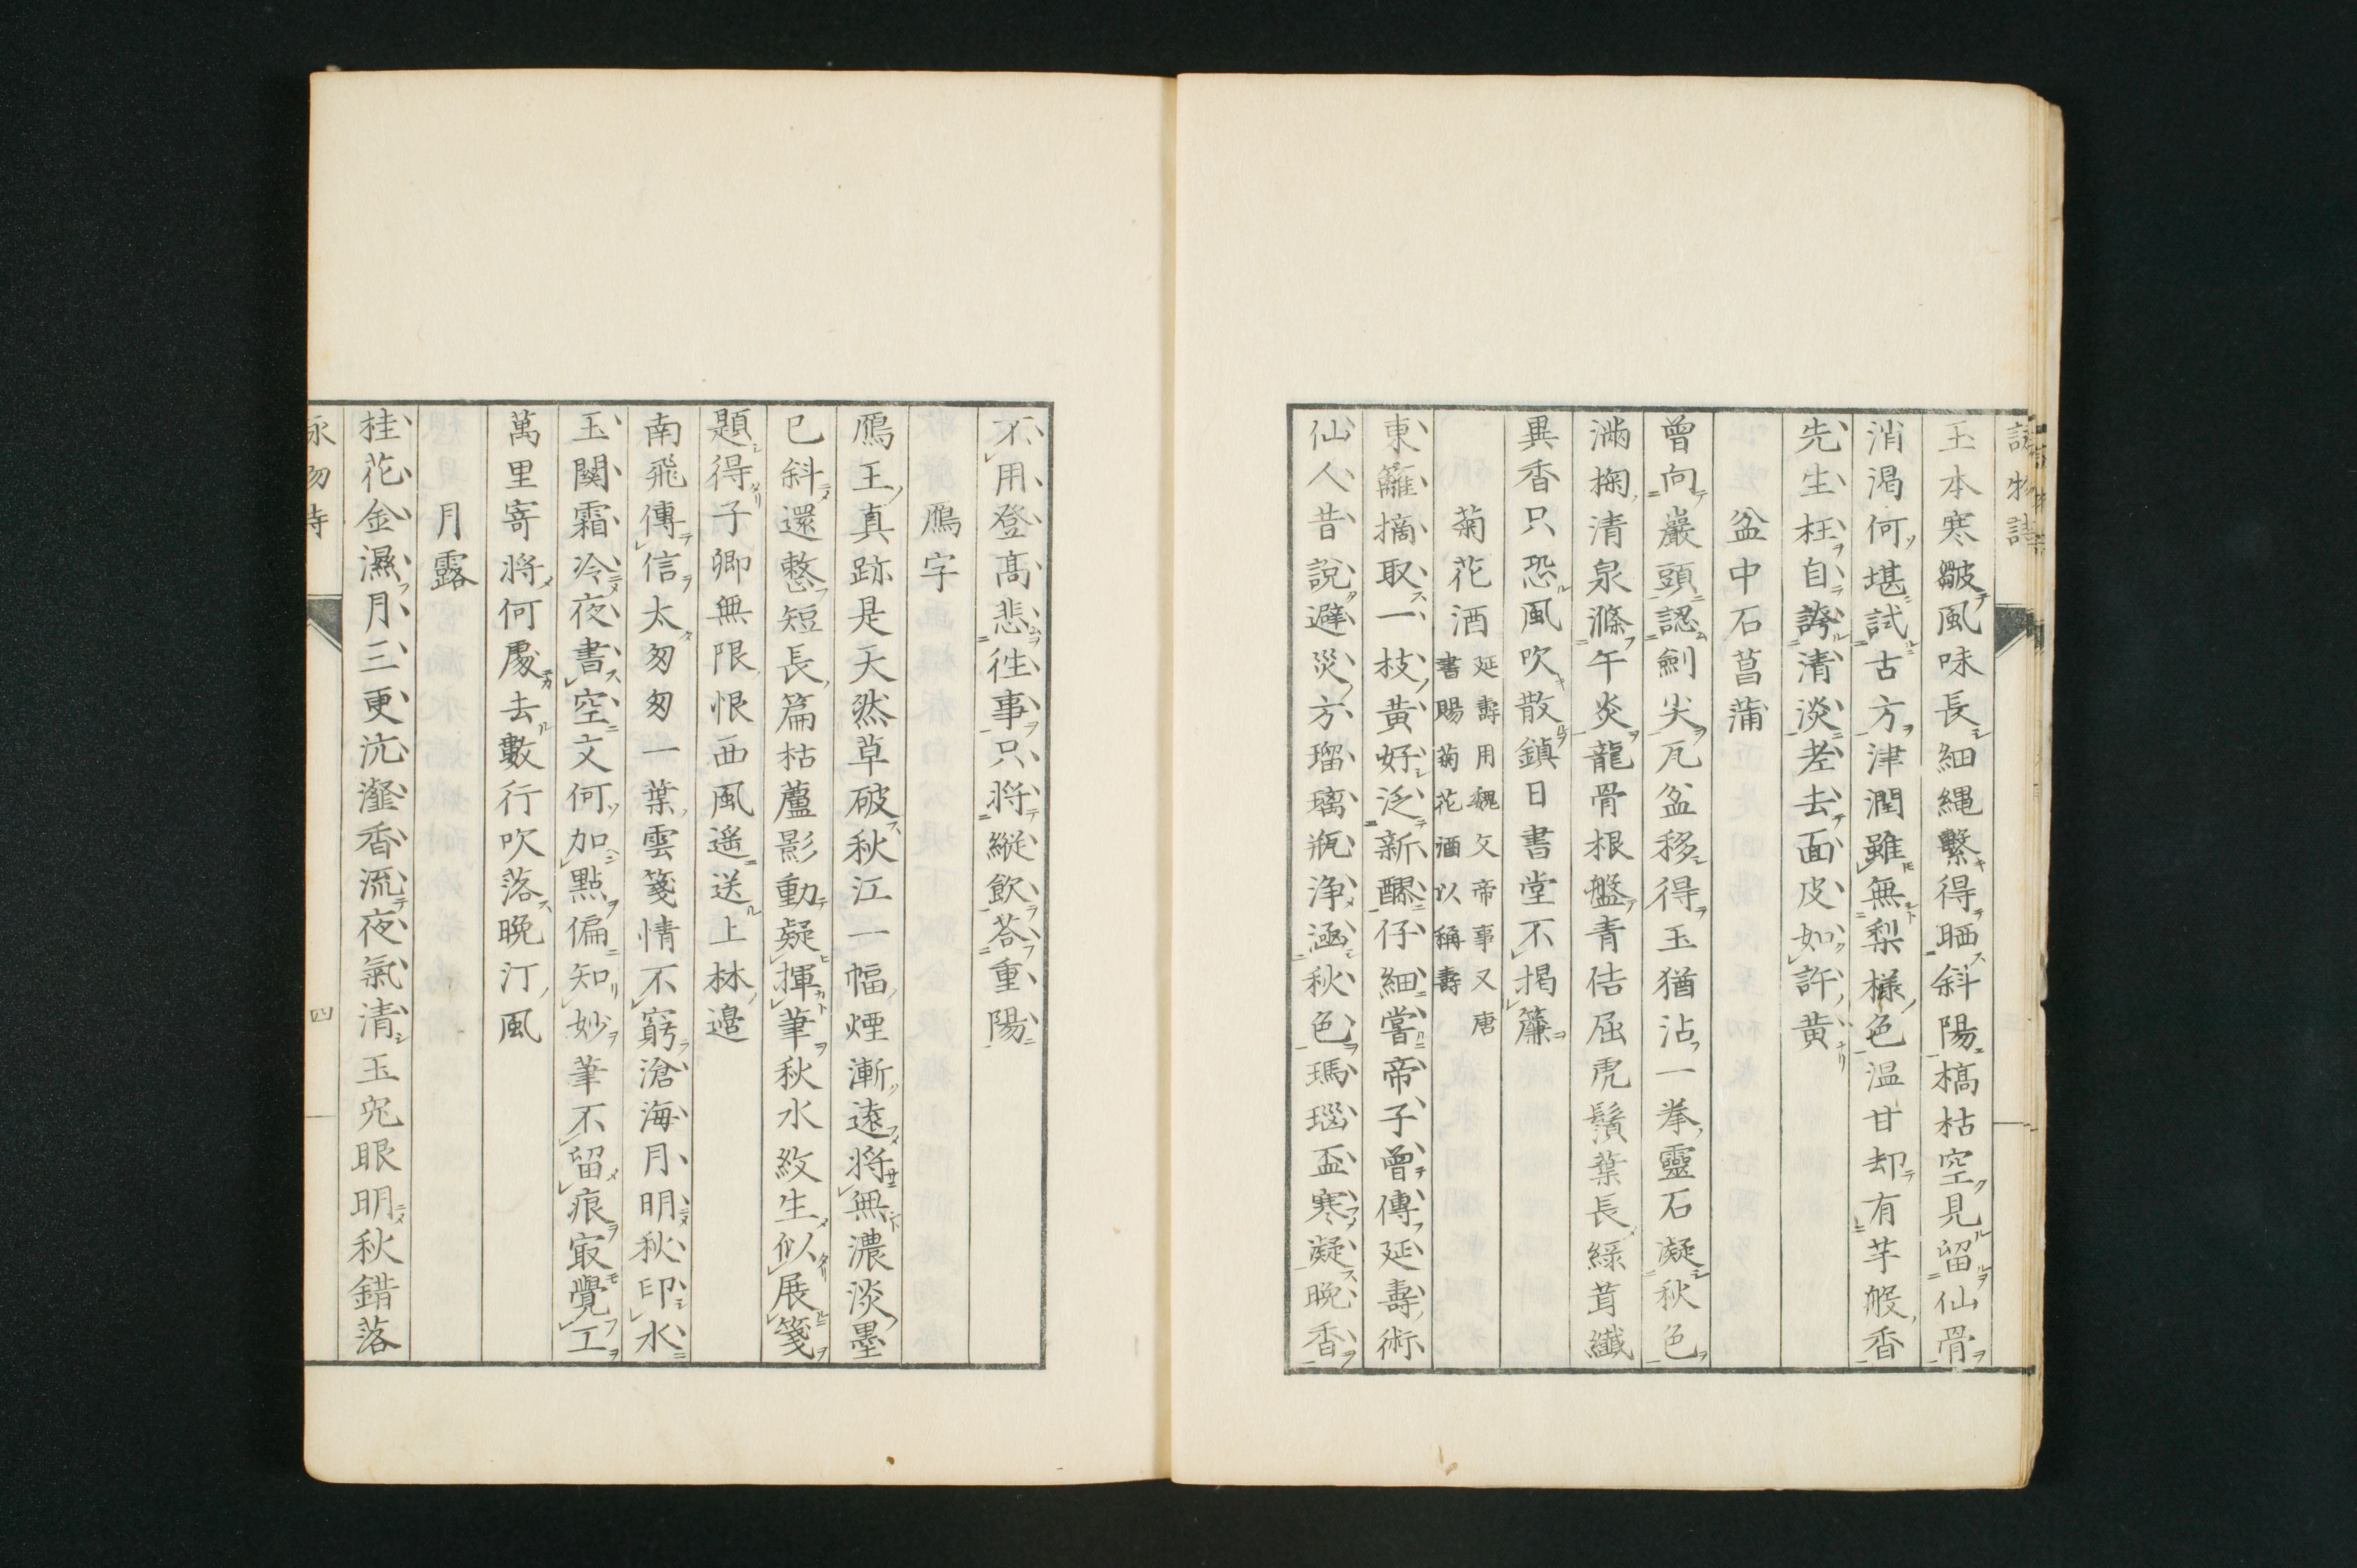 詠物詩
玉本寒皺風味長細繩繫得晒斜陽槁枯空見留仙骨
消渇何堪試古方津潤雖無梨樣色温甘却有芋般香
先生枉自誇清淡老去面皮如許黄
盆中石菖蒲
曾向巖頭認劍尖瓦盆移得玉猶沾一拳靈石凝秋色
滿掬清泉滌午炎龍骨根盤青佶屈虎鬚葉長綠茸纖
異香只恐風吹散鎮日書堂不掲簾
菊花酒
延壽用魏文帝事又唐
書賜菊花酒以稱壽
東籬摘取一枝黄好泛新醪仔細嘗帝子曾傳延壽術
仙人昔說避災方瑠璃瓶浄涵秋色瑪瑙盃寒凝晩香
不用登高悲往事只将縱飲荅重陽
鴈字
鴈王真跡是天然草破秋江一幅煙漸遠将無濃淡墨
已斜還整短長篇枯蘆影動疑揮筆秋水紋生似展箋
題得子卿無限恨西風遥送上林邉
南飛傳信太匆匆一葉雲箋情不窮滄海月明秋印水
玉關霜冷夜書空文何加點偏知妙筆不留痕㝡覺工
萬里寄将何處去數行吹落晩汀風
月露
桂花金濕月三更沆瀣香流夜氣清玉兔眼明秋錯落
詠物詩
四